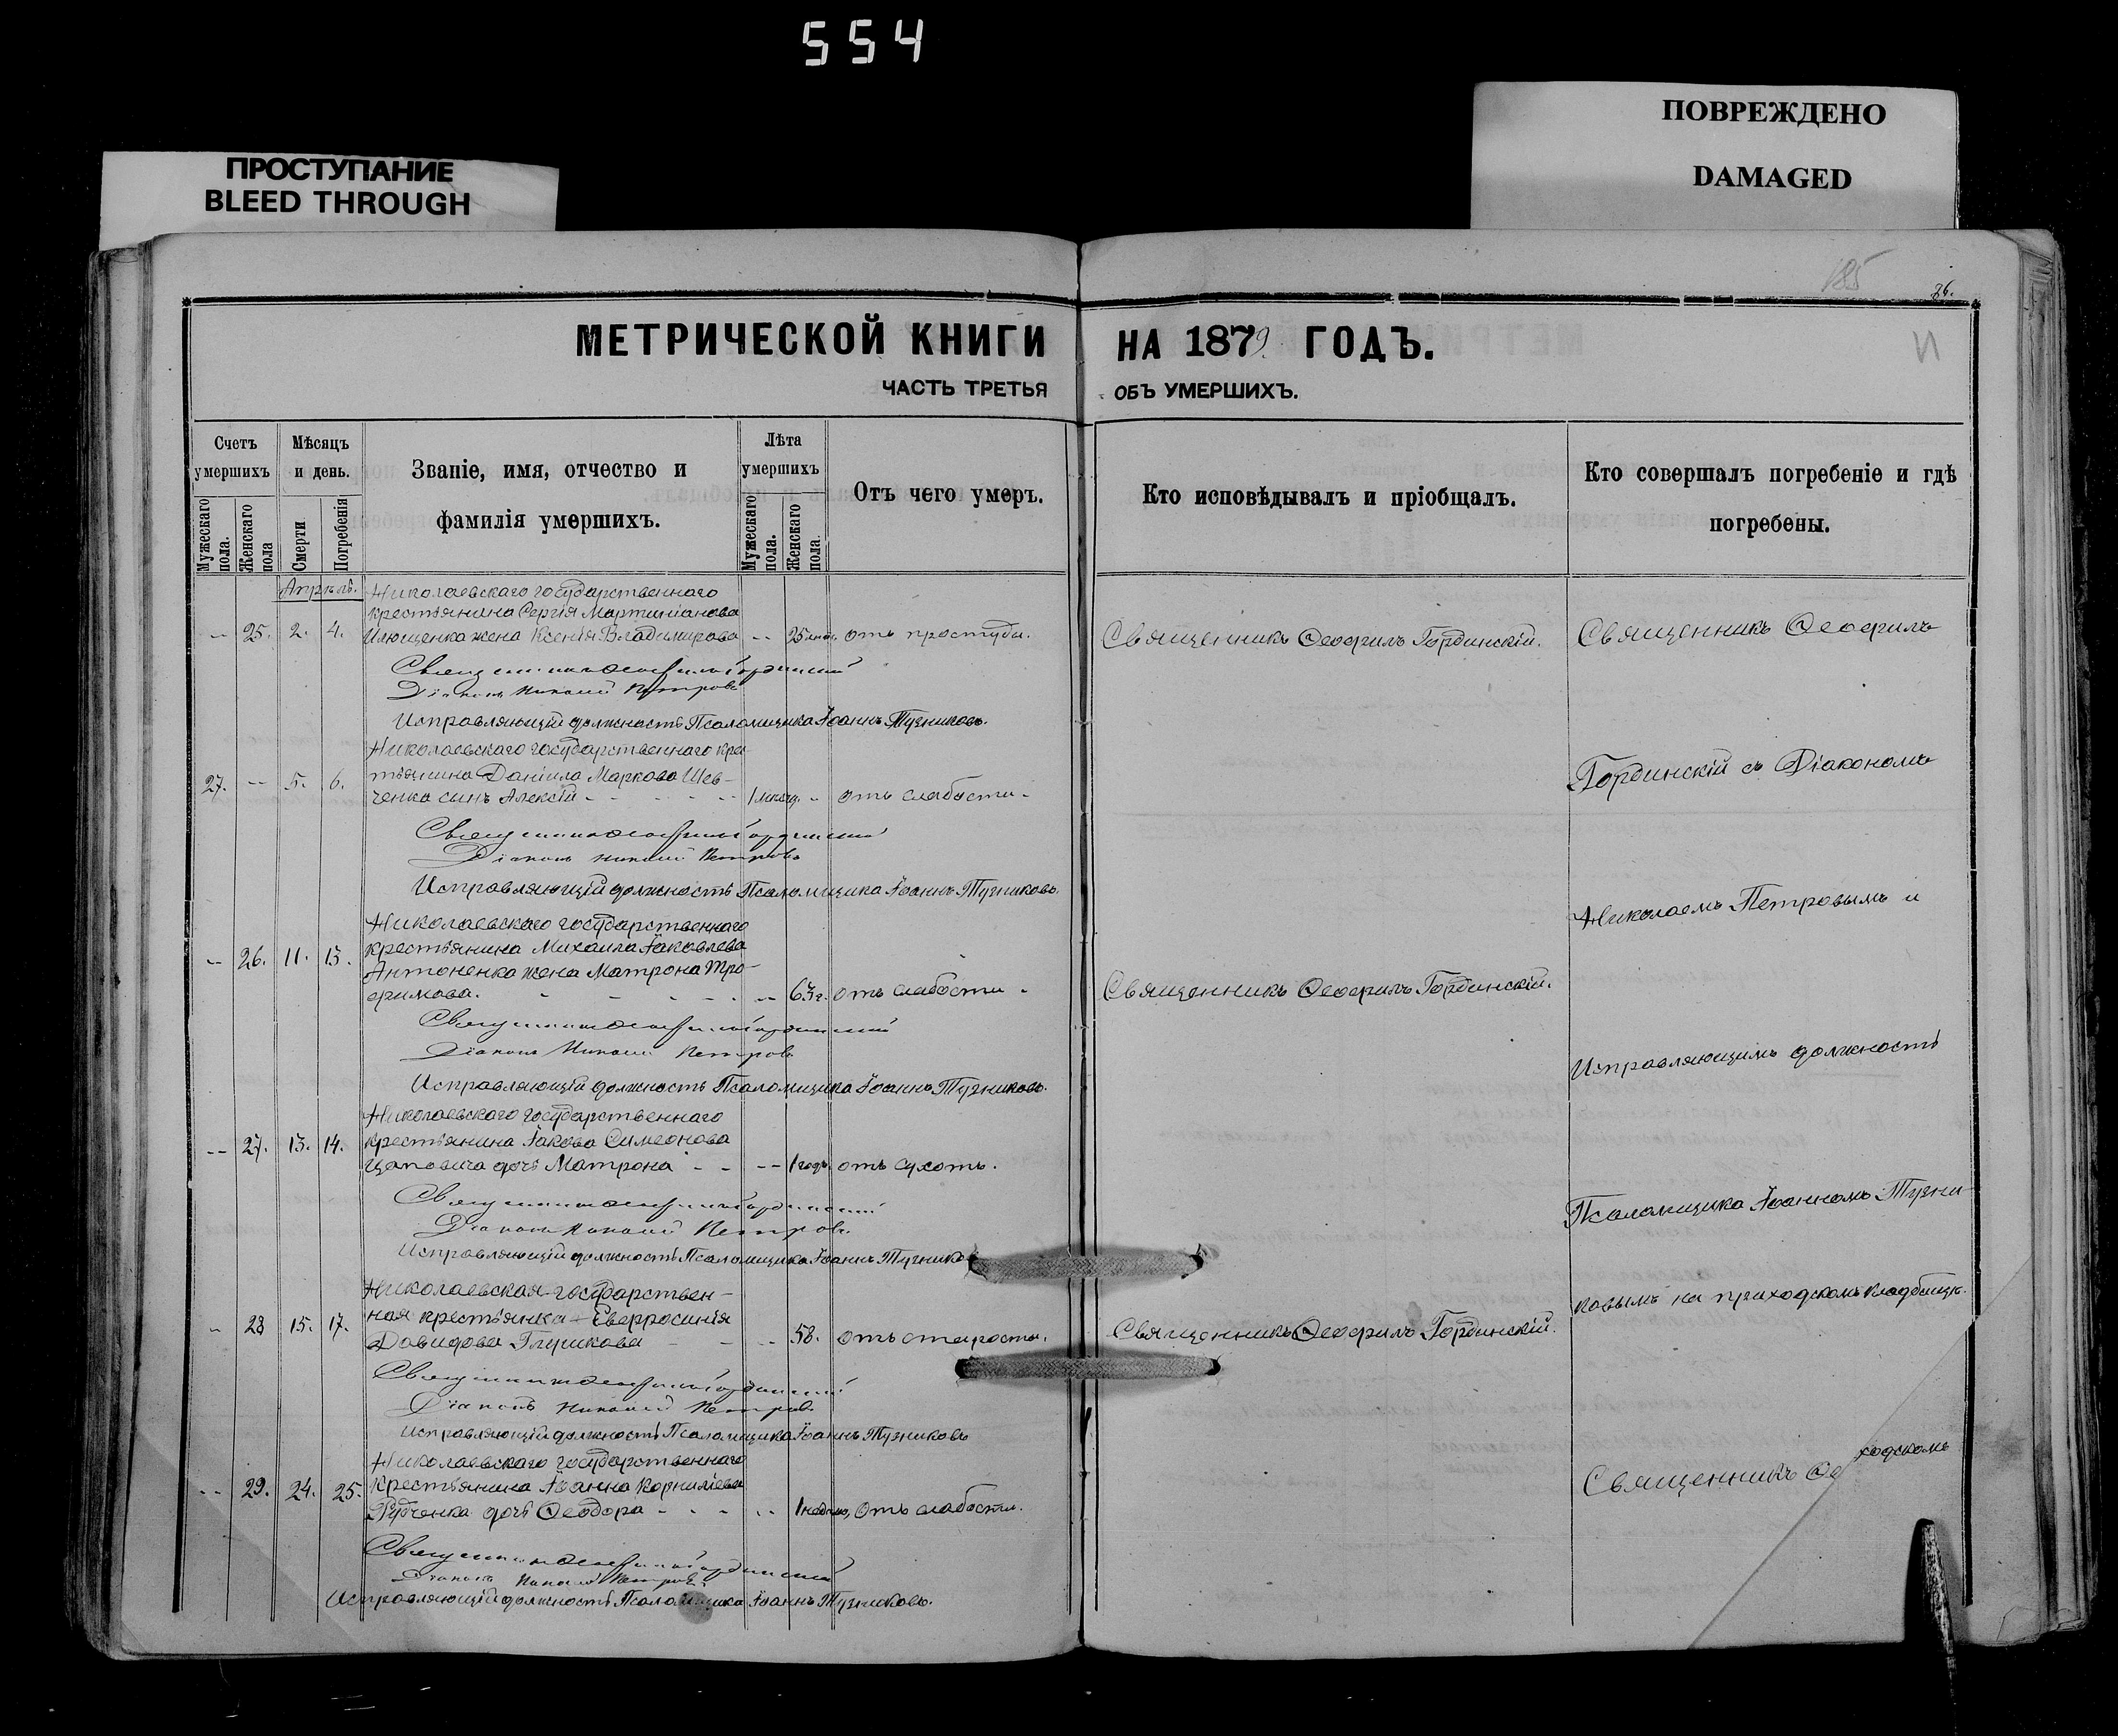 554
ПРОСТУПАНИЕ
BLEED THROUGH
ПОВРЕЖДЕНО
DAMAGED
185
МЕТРИЧЕСКОЙ КНИГИ НА 1879 ГОДЪ.
ЧАСТЬ ТРЕТЬЯ ОБЪ УМЕРШИХЪ.
Счетъ умершихъ
Мужескаго пола.
Женскаго пола
Мѣсяцъ и день.
Смерти
Погребенія
Званіе, имя, отчество и
фамилія умершихъ.
Лѣта умершихъ
Мужескаго пола.
Женскаго пола.
Отъ чего умеръ.
Кто исповѣдывалъ и пріобщалъ.
Кто совершалъ погребеніе и гдѣ
погребены.
Апрѣль.
Николаевскаго государственнаго
крестьянина Сергія Мартиніанова
25. 2. 4. Илющенка жена Ксенія Владимирова 25 отъ простуды. Священникъ Ѳеофилъ Гординскій. Священникъ Ѳеофилъ
Священникъ Ѳеофилъ Гординскій
Діаконъ Николай Петровъ
Исправляющій должность Псаломщика Іоаннъ Тузниковъ.
Николаевскаго государственнаго кре-
27. 5. 6. тьянина Даніила Маркова Шев-
ченка сынъ Алексій 1 мѣсяц. отъ слабости
Гординскій съ Діакономъ
Священникъ Ѳеофилъ Гординскій
Діаконъ Николай Петровъ
Исправляющій должность Псаломщика Іоаннъ Тузниковъ.
Николаемъ Петровымъ и
Николаевскаго государственнаго
26. 11. 13. крестьянина Михаила Іаковлева
Антоненка жена Матрона Тро-
фимова. 63 г. отъ слабости Священникъ Ѳеофилъ Гординскій.
Священникъ Ѳеофилъ Гординскій
Діаконъ Николай Петровъ
Исправляющій должность Псаломщика Іоаннъ Тузниковъ.
Исправляющимъ должность
Николаевскаго государственнаго
27. 13. 14. крестьянина Іакова Симеонова
дочь Матрона 1 годъ отъ сухотъ.
Священникъ Ѳеофилъ Гординскій
Діаконъ Николай Петровъ.
Исправляющій должность Псаломщика Іоаннъ Тузнико
Псаломщика Іоанномъ Тузни-
Николаевская государствен-
28 15. 17. ная крестьянка Евфросинія
Давидова Глушкова 58. отъ старости. Священникъ Ѳеофилъ Гординскій.
ковымъ на приходскомъ кладбищѣ.
Священникъ Ѳеофилъ Гординскій
Діаконъ Николай Петровъ
Исправляющій должность Псаломщика Іоаннъ Тузниковъ
Николаевскаго государственнаго
29. 24. 25. крестьянина Іоанна Корниліева
дочь Ѳеодора 1 отъ слабости.
Священникъ Ѳе
ходскомъ
Священникъ Ѳеофилъ Гординскій
Діаконъ Николай Петровъ
Исправляющій должность Псаломщика Іоаннъ Тузниковъ.